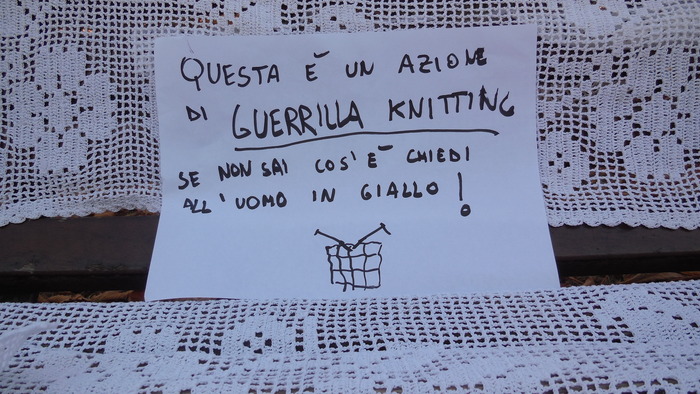 QUESTA È UN AZIONE
DI GUERRILLA KNITTING
SE NON SAI COS'È CHIEDI
ALL'UOMO IN GIALLO!